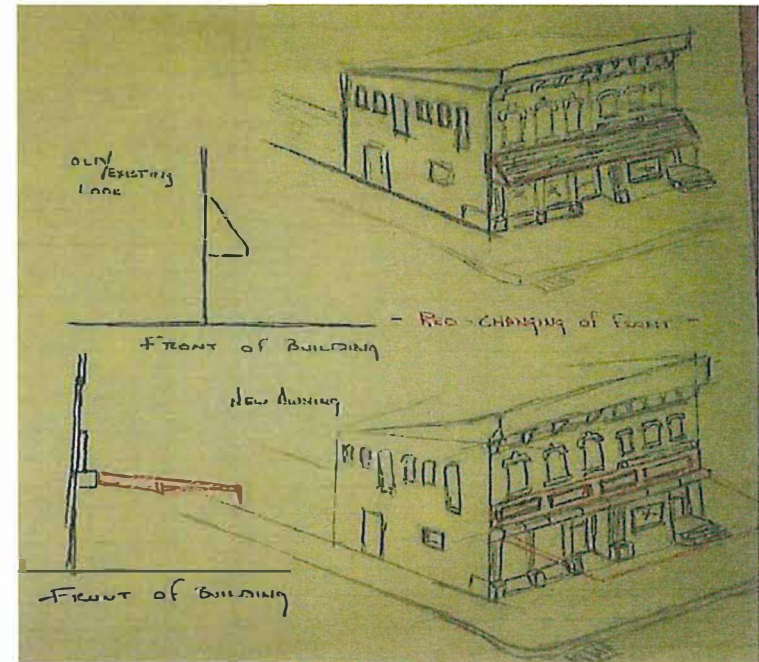 OLD/EXISTING
LOOK
FRONT OF BUILDING
- RED - CHANGING OF FRONT -
NEW AWNING
FRONT OF BUILDING